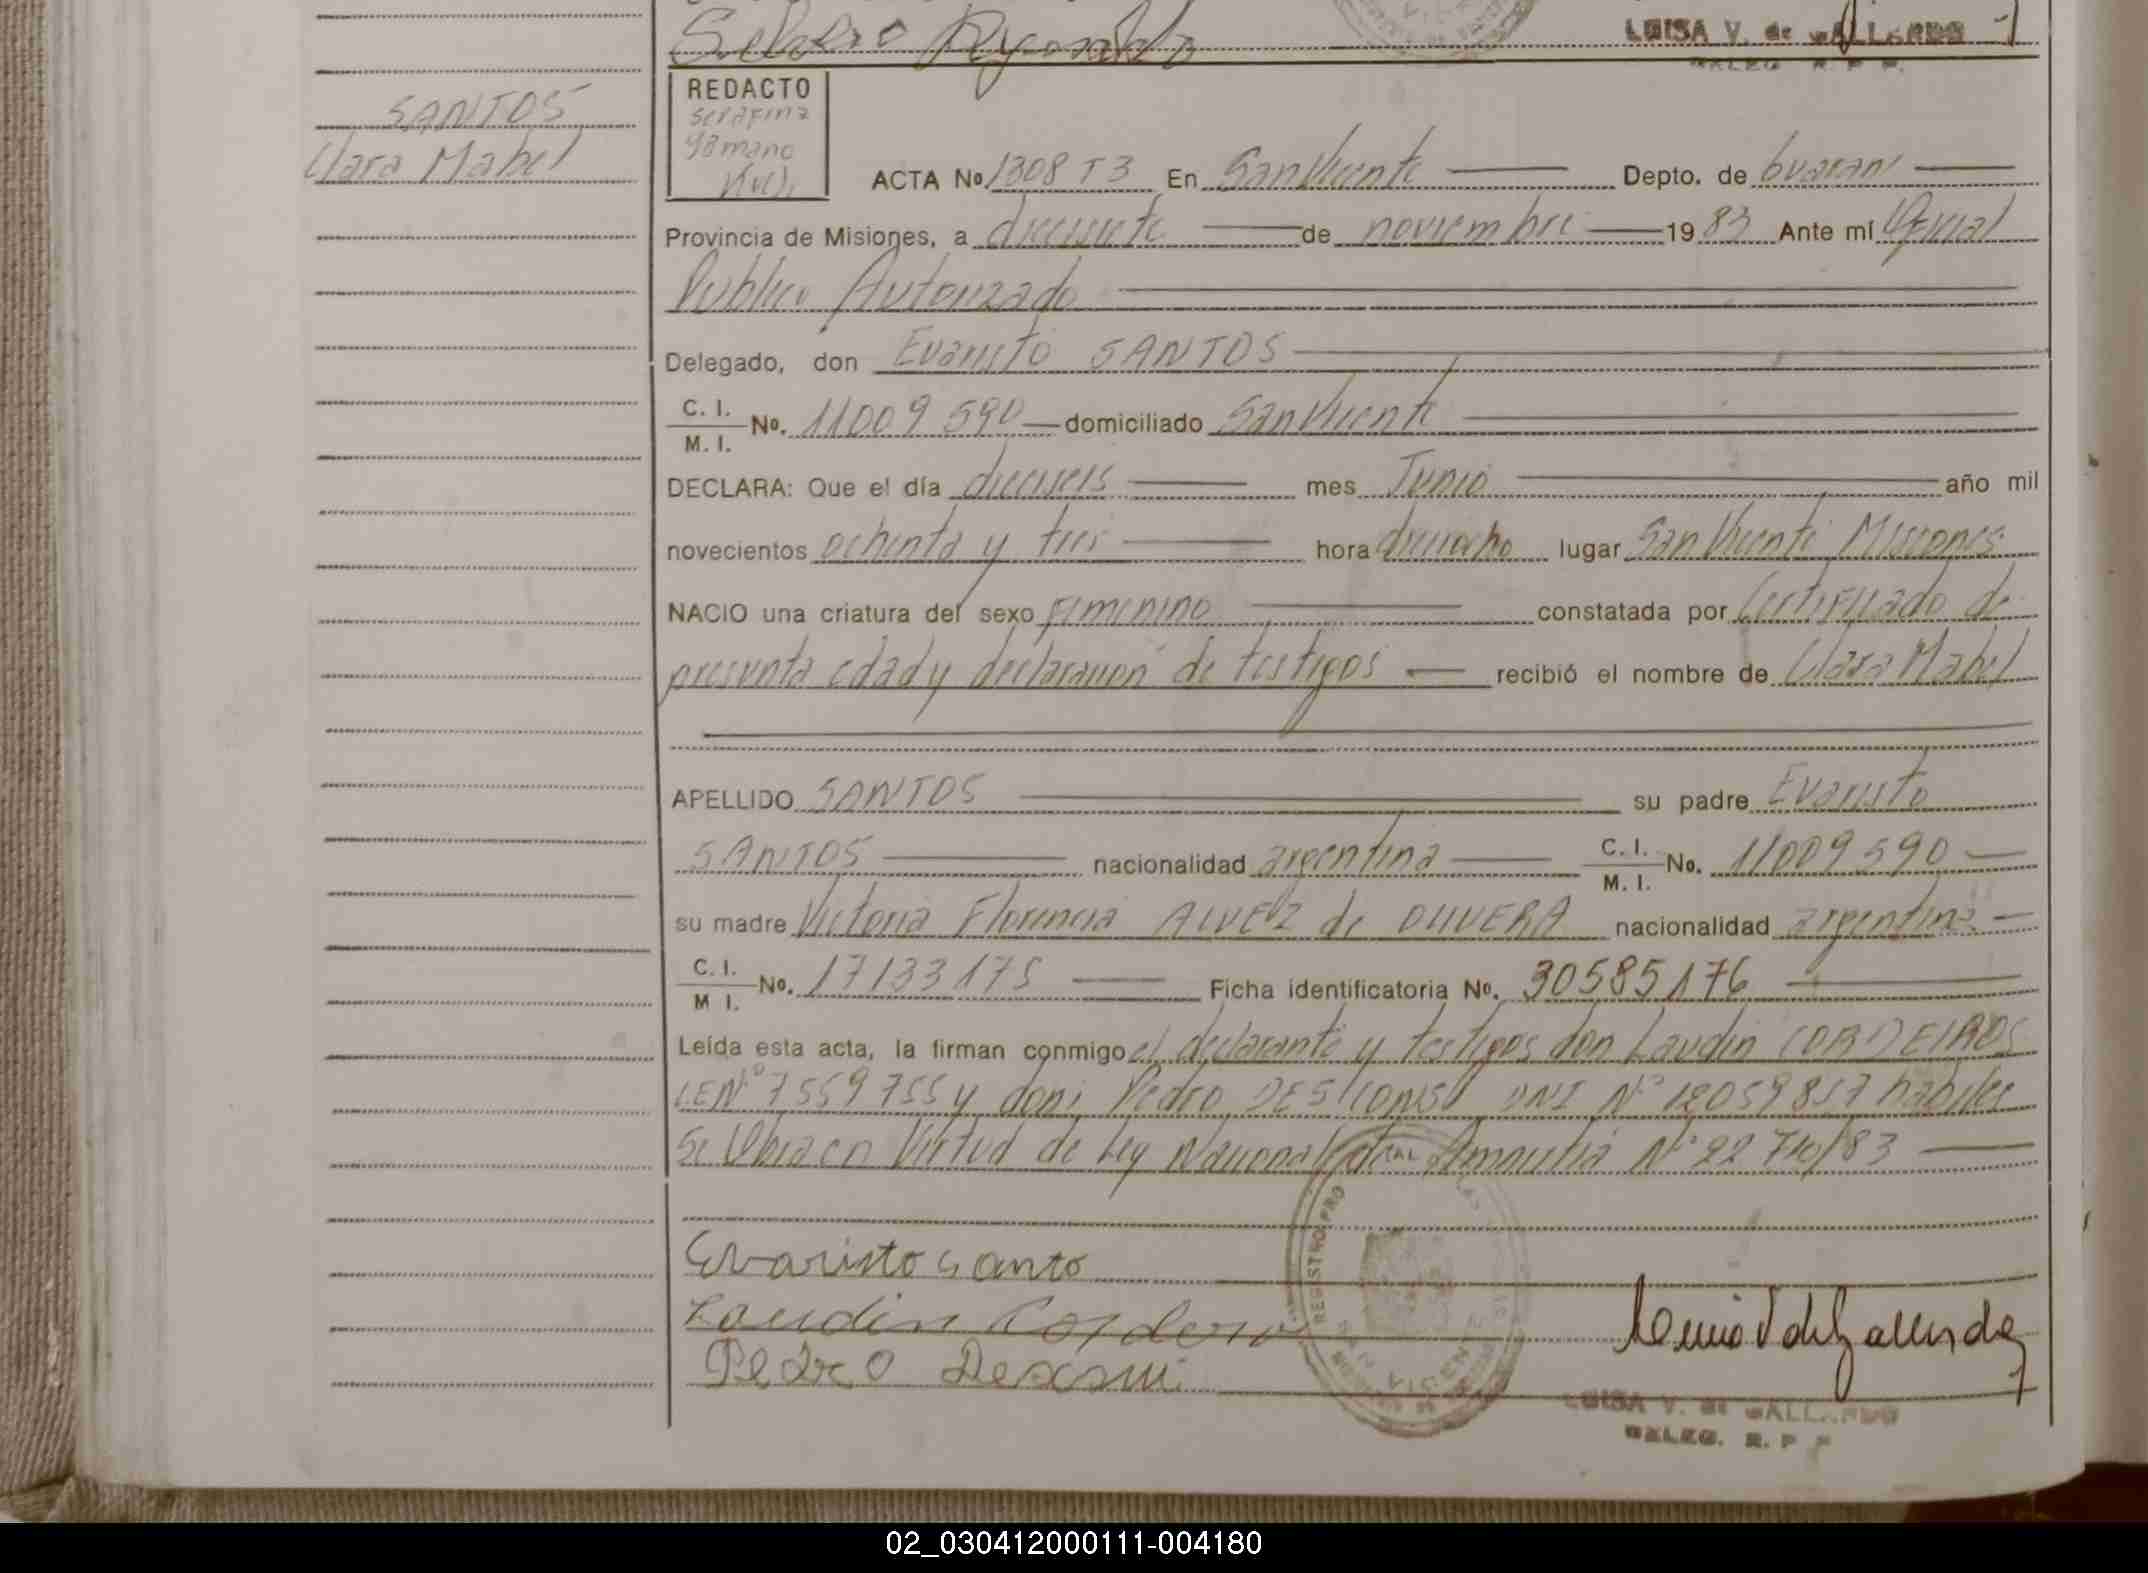 LUISA V. de GALLARDO
DELEG. R. P. P.
SANTOS
Clara Mabel
REDACTO
Serafina
ACTA Nº 1308 T3 En San Vicente Depto. de Guaraní
Provincia de Misiones, a diecisiete de noviembre 1983 Ante mí Oficial
Público Autorizado
Delegado, don Evaristo SANTOS
C. I.
M. I. Nº. 11009590 domiciliado San Vicente
DECLARA: Que el día dieciseis mes Junio año mil
novecientos ochenta y tres hora dieciocho lugar San Vicente Misiones
NACIO una criatura del sexo Femenino constatada por Certificado de
presunta edad y declaración de testigos recibió el nombre de Clara Mabel
APELLIDO SANTOS su padre Evaristo
SANTOS nacionalidad argentina C. I.
M. I. No. 11009590
su madre Victoria Florencia ALVEZ de OLIVERA nacionalidad argentina
C. I.
M I. No. 17133175 Ficha identificatoria Nº. 30585176
Leída esta acta, la firman conmigo el declarante y testigos don Laudin CORDEIROS
LENº 7559755 y don Pedro DNI Nº 12059857 hábiles
Se Ubica en Virtud de Ley Nacional de Amnistia Nº 22710/83
Evaristo Santo
Laudin
Pedro
REGISTRO PRO
LUISA V. de GALLARDO
DELEG. R. P P
02_030412000111-004180